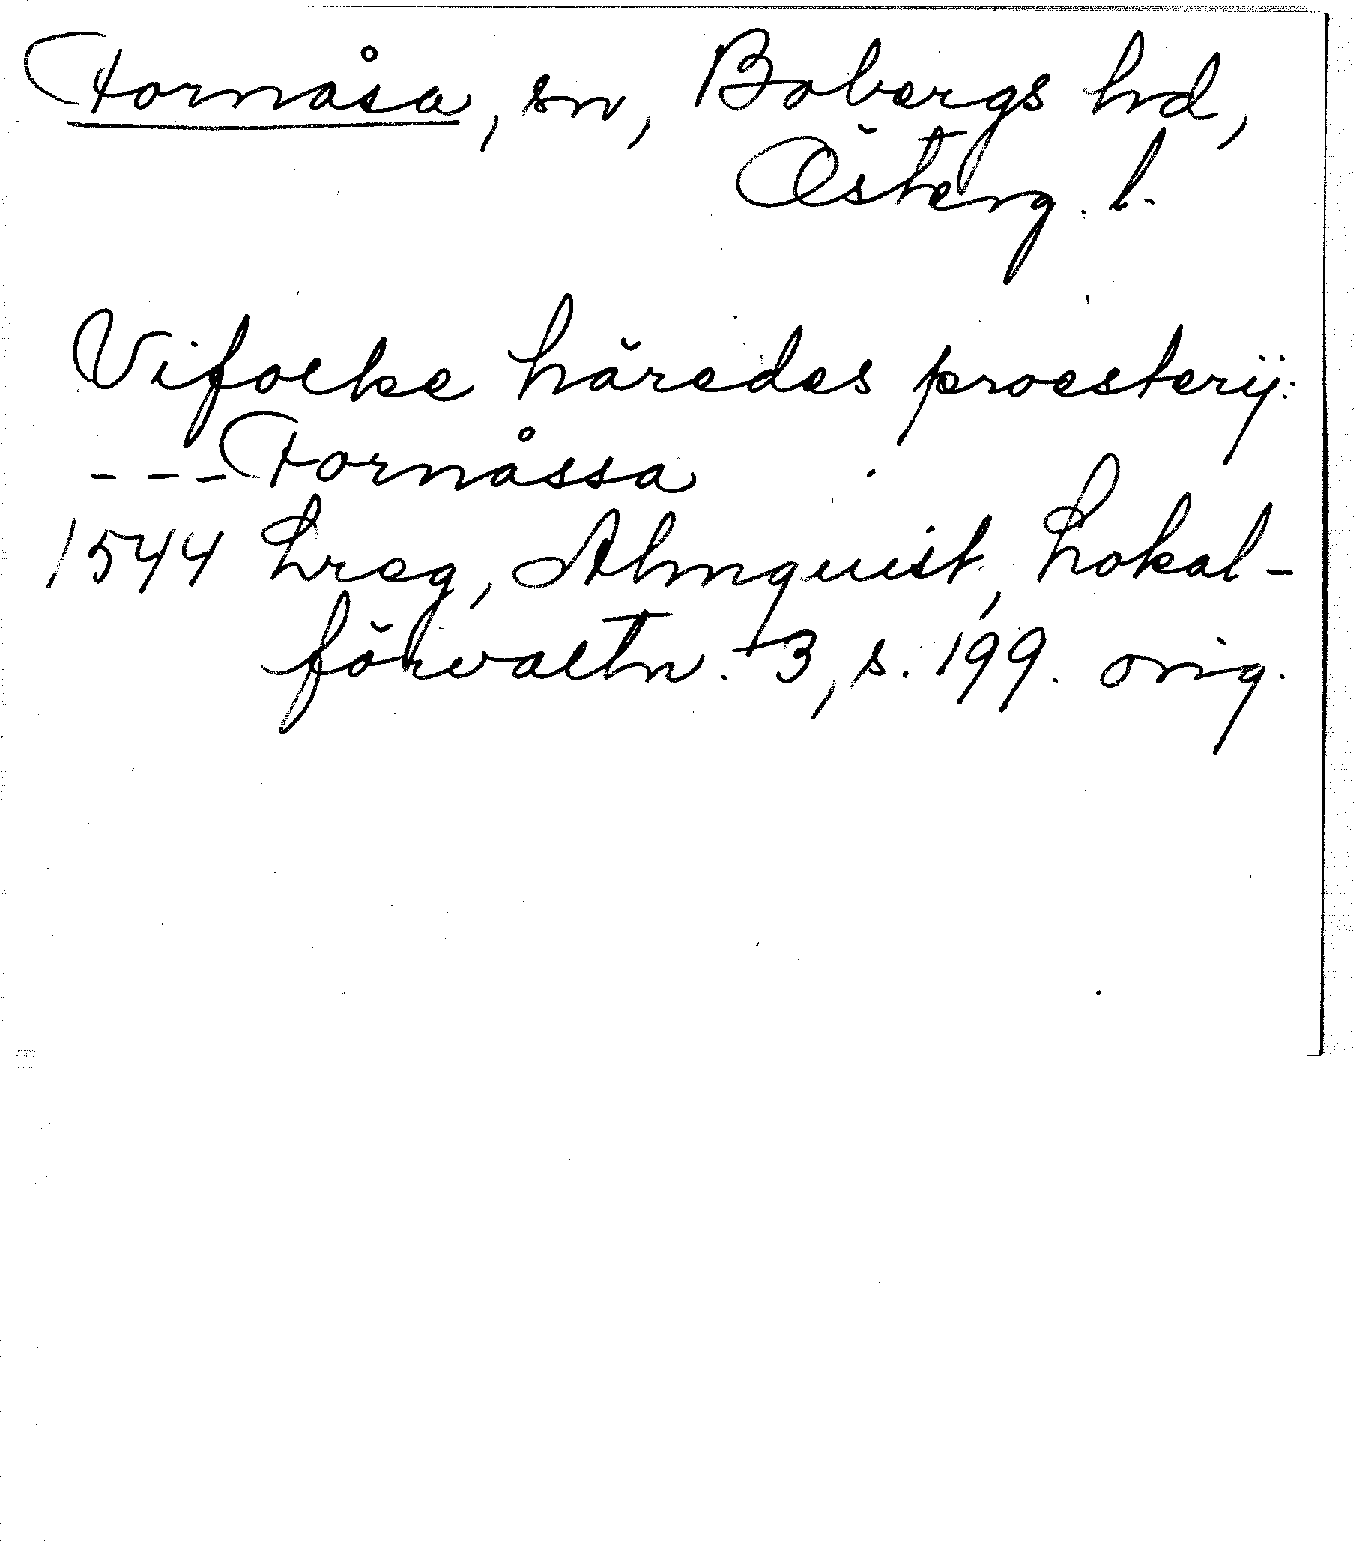 Fornåsa, sn, Bobergs hd,
Österg. l.
Vifolke häredes proesterij:
--- Fornåssa
1544 Lreg, Almquist, Lokal-
förvaltn. 3, s. 199. orig.